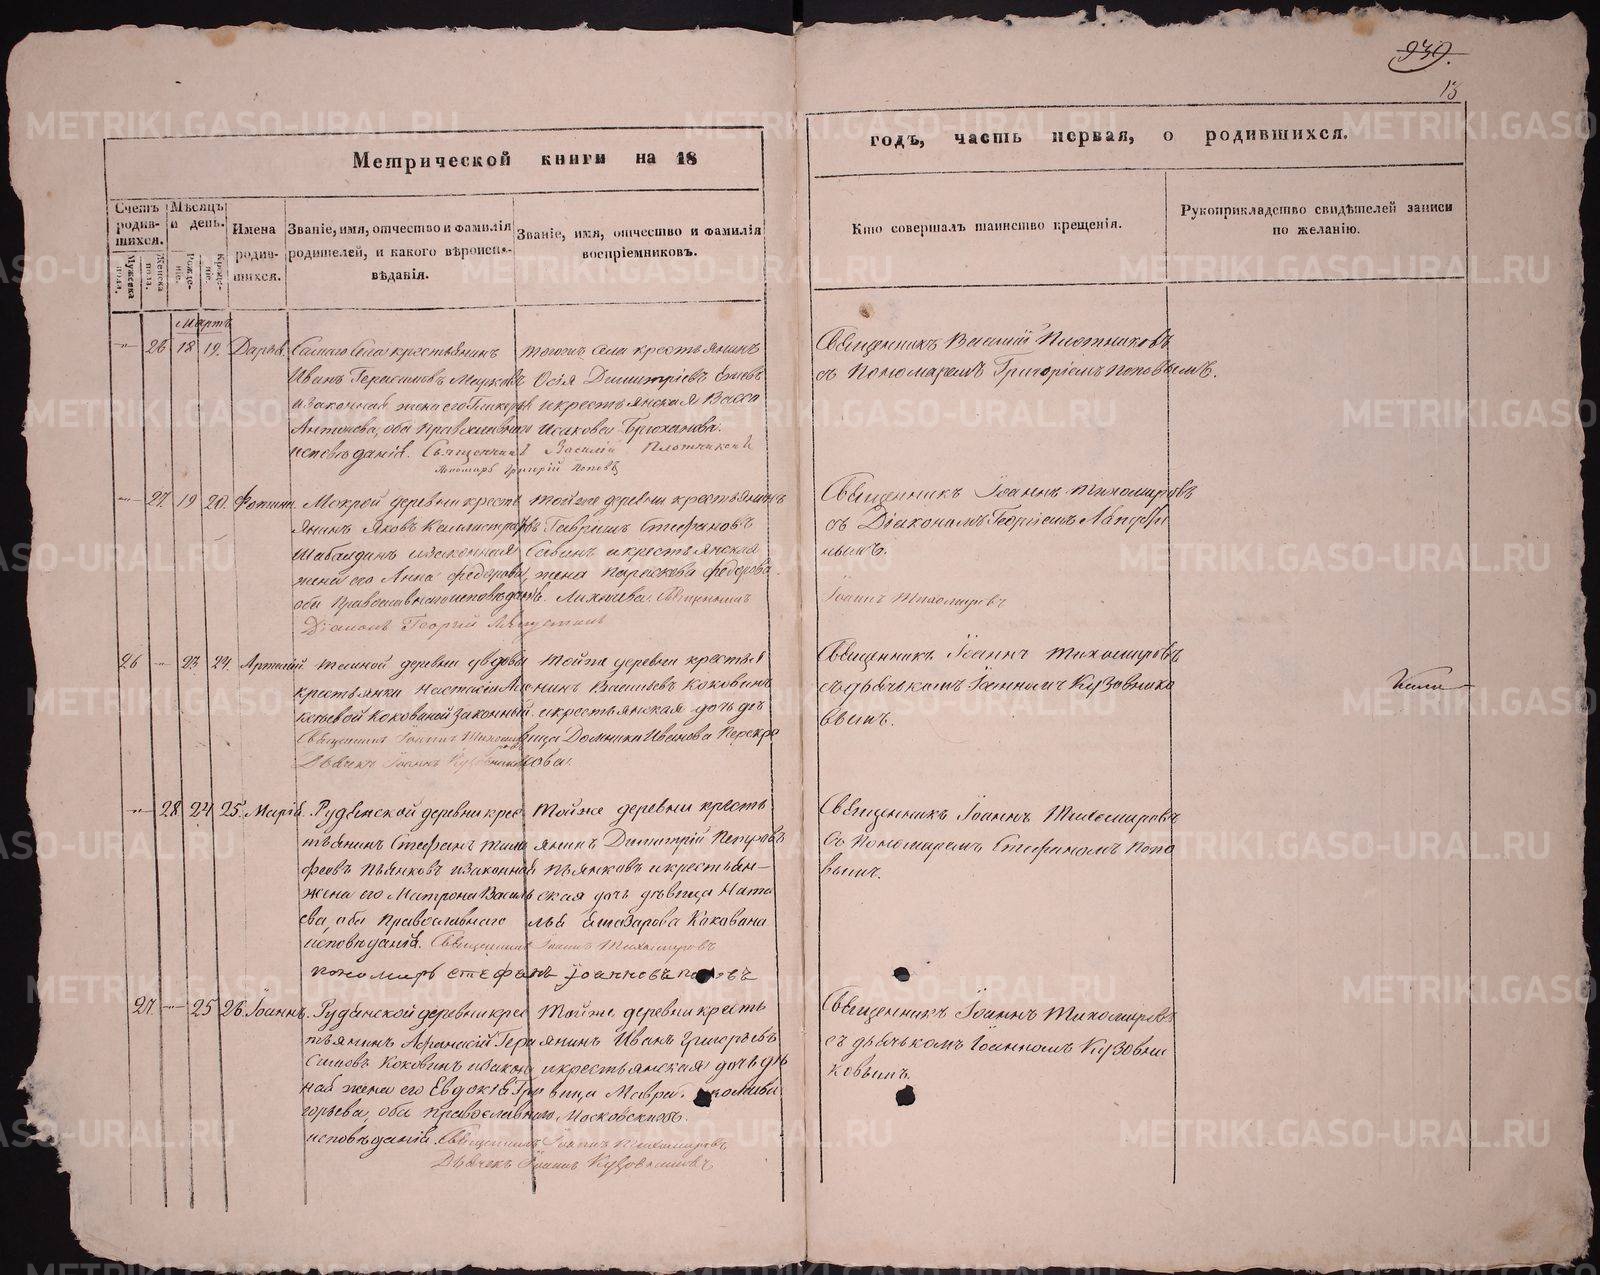 939.
13
Метрической книги на 18
годъ, часть первая, о родившихся.
Счетъ родив-шихся.
Мужеска пола.
Женска пола.
Мѣсяцъ и день.
Рожде-нiе.
Креще-нiе.
Имена родив-шихся.
Званiе, имя, отчество и фамилiя родителей, и какого вѣроиспо-вѣданiя.
Званiе, имя, отчество и фамилiя воспрiемниковъ.
Кто совершалъ таинство крещенiя.
Рукоприкладство свидѣтелей записи по желанiю.
Мартъ
26 18 19. Дарья.
Самаго Села крестьянинъ
Иванъ Герасимовъ
и законная жена его Гликерья
Антонова, оба Православнаго
исповѣданiя. Священникъ Василiй Плотниковъ
Пономарь Григорiй Поповъ
тогожъ села крестьянинъ
Осiя Димитрiевъ
и крестьянская Васса
Исакова Брюханова.
Священникъ Василiй Плотниковъ
съ Пономаремъ Григорiемъ Поповымъ.
27. 19 20. Фотина.
Мокрой деревни кресть
янинъ Яковъ Каллистратовъ
Шабалдинъ и законная
жена его Анна Федорова,
оба Православнаго исповѣданiя. Священникъ
Дiаконъ Георгiй Лапутинъ
той же деревни крестьянинъ
Гаврiилъ Стефановъ
Савинъ и крестьянская
жена Параскева Федорова
Священникъ Iоаннъ Тихомировъ
съ Дiакономъ Георгiемъ Лапути
нымъ.
Iоаннъ Тихомировъ
26 23 24. Артемiй
деревни вдовы
крестьянки Настасiи
Коковиной законный.
Священникъ Iоаннъ Тихомировъ
Дьячекъ Iоаннъ Кузовниковъ
той же деревни крестья
нинъ Василiевъ Коковинъ
и крестьянская дочь дѣ
вица Домника Иванова
Священникъ Iоаннъ Тихомировъ
съ дьячькомъ Iоанномъ Кузовнико
вымъ.
28 24 25. Марiя.
Рудянской деревни крес
тьянинъ Стефанъ Тимо
феевъ Пьянковъ и законная
жена его Матрона Василь
ева, оба Православнаго
исповѣданiя. Священникъ Iоаннъ Тихомировъ
пономарь стефанъ Iоанновъ поповъ
той же деревни кресть
янинъ Димитрiй Петровъ
Пьянковъ и крестьян-
ская дочь дѣвица Ната
лья Елизарова Коковина
Священникъ Iоаннъ Тихомировъ
съ Пономаремъ Стефаномъ Попо
вымъ.
27. 25 26. Iоаннъ.
Рудянской деревни крес
тьянинъ Афанасiй Гера
симовъ Коковинъ и закон
ная жена его Евдокiя Гри
горьева, оба православнаго
исповѣданiя. Священникъ Iоаннъ Тихомировъ
Дьячекъ Iоаннъ Кузовниковъ
той же деревни кресть
янинъ Иванъ Григорьевъ
и крестьянская дочь дѣ
вица Мавра
Священникъ Iоаннъ Тихомировъ
съ дьячькомъ Iоанномъ Кузовни
ковымъ.
METRIKI.GASO-URAL.RU